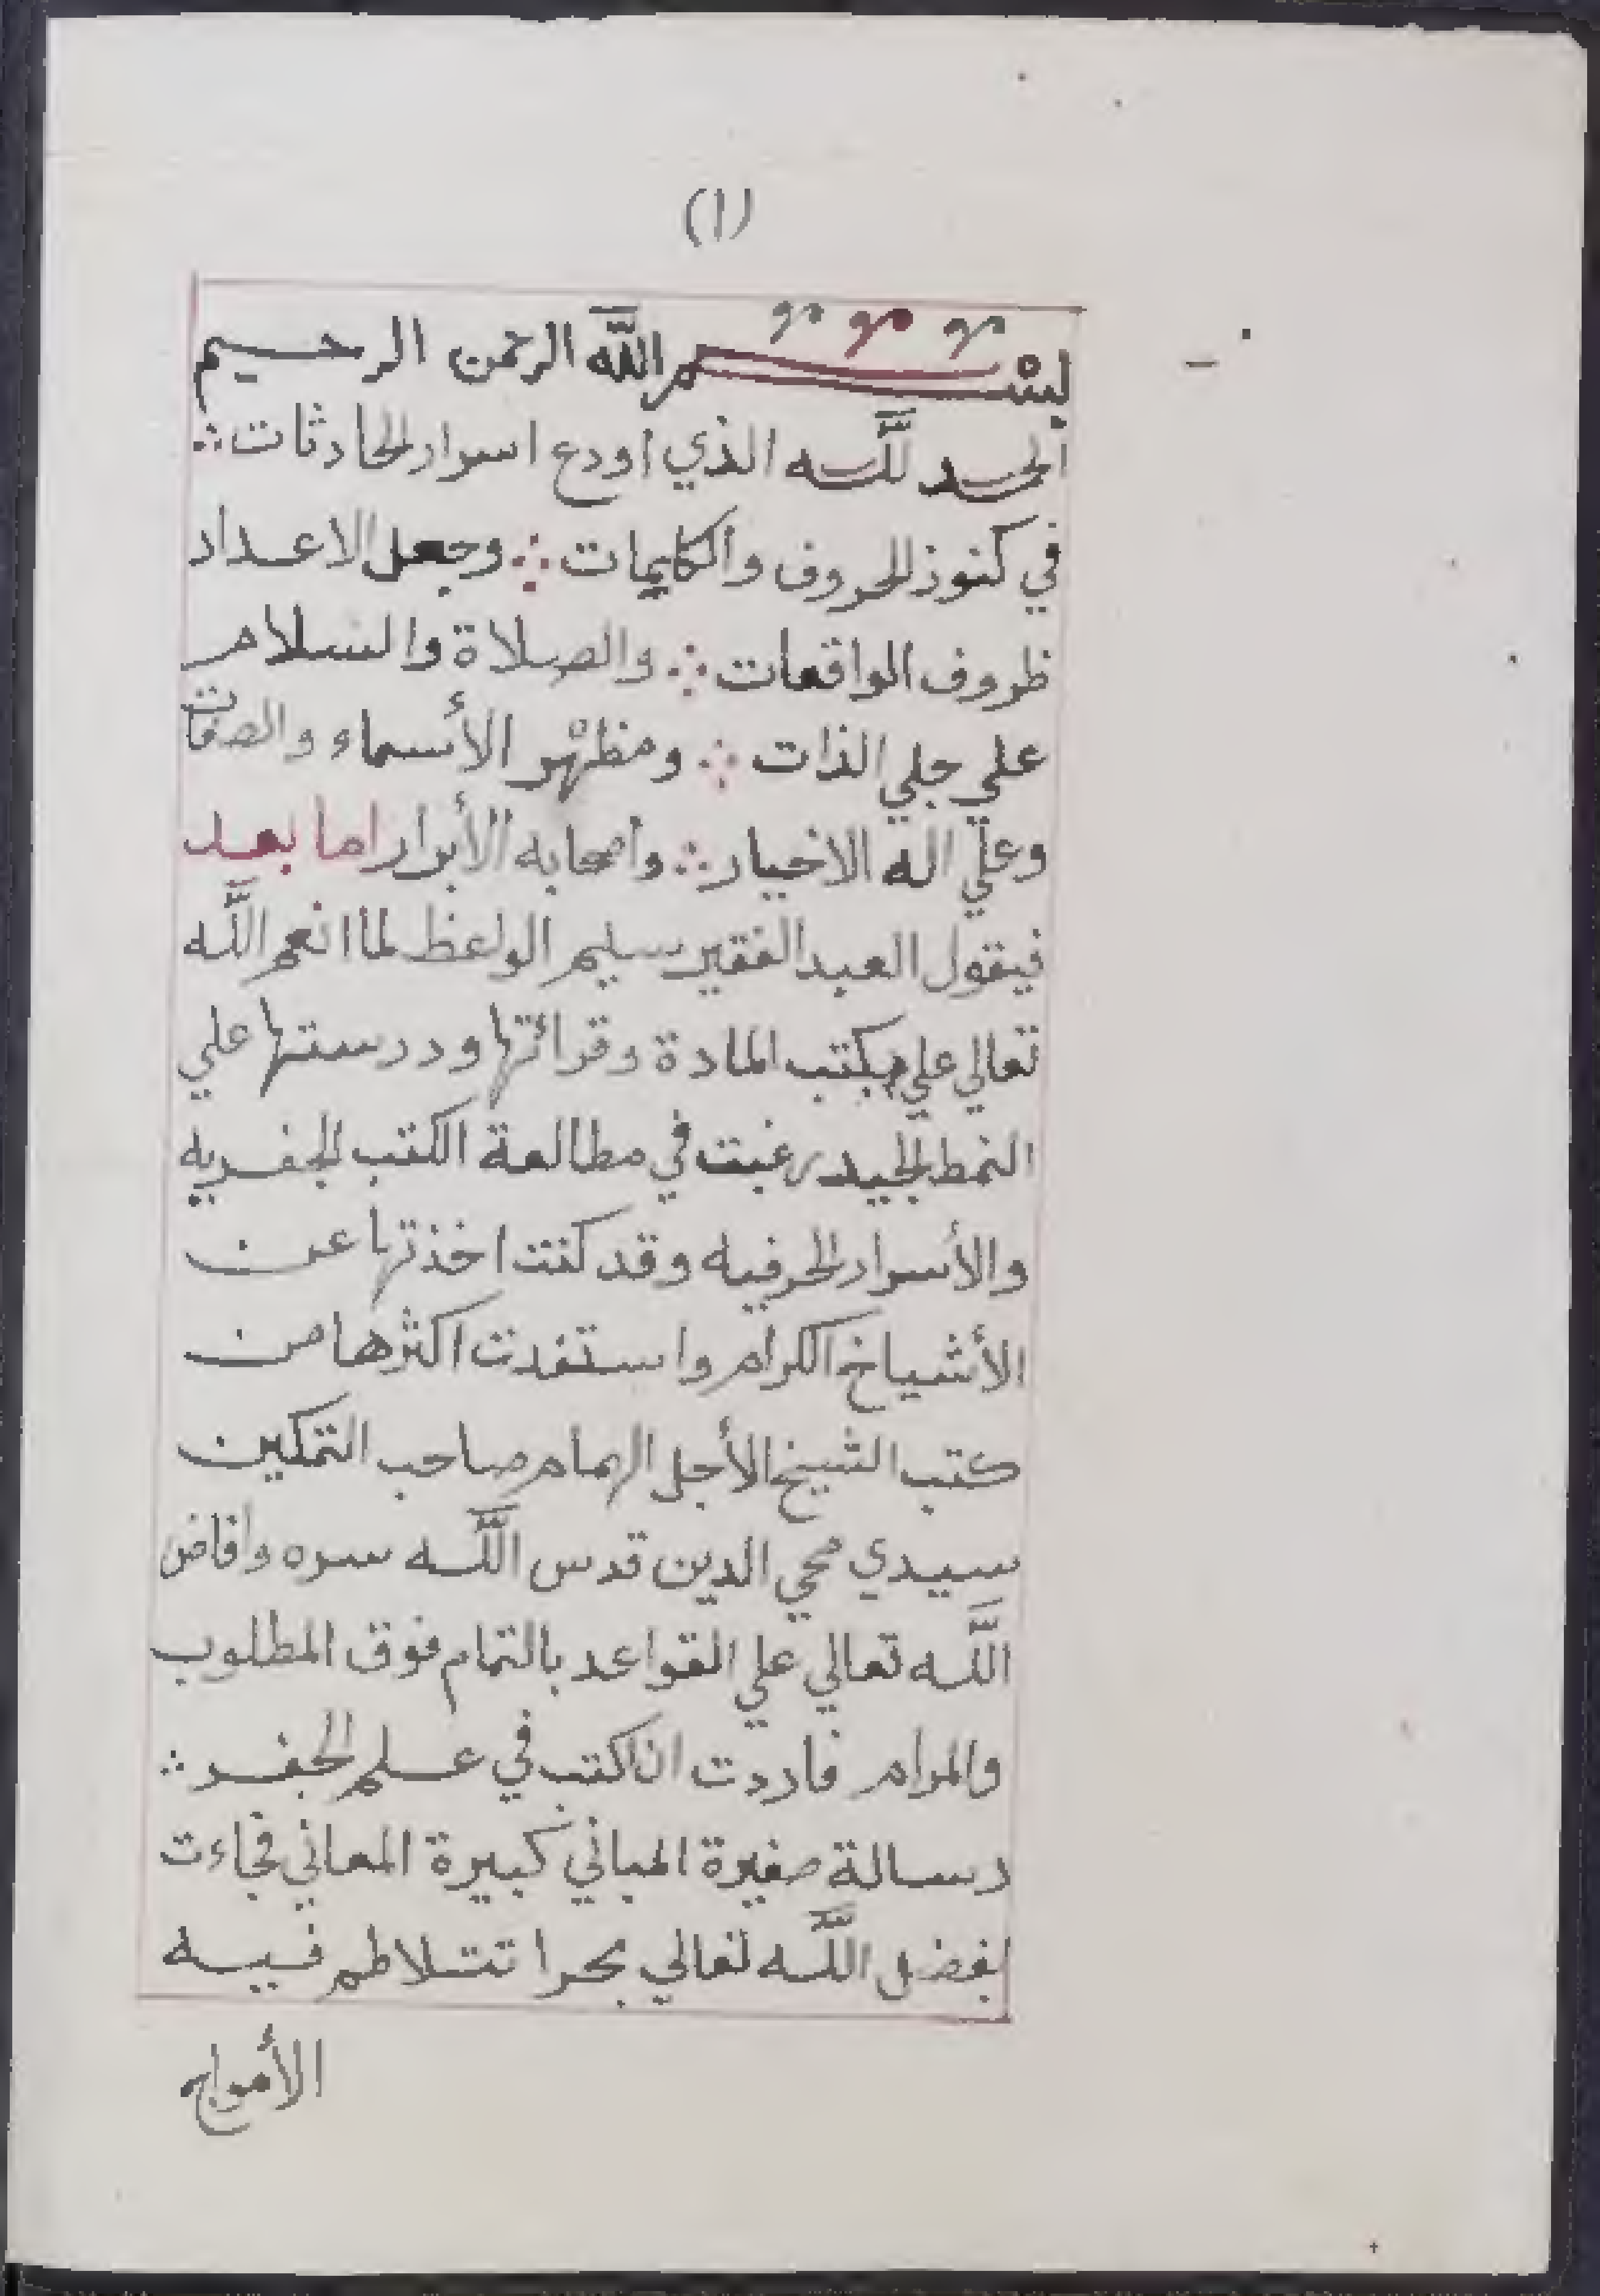 (١)
بسم الله الرحمن الرحيم
الحمد لله الذي اودع اسرار الحادثات ∴
في كنوز الحروف والكلمات ∴ وجعل الاعداد
ظروف الواقعات ∴ والصلاة والسلام
علي جلي الذات ∴ ومظهر الأسماء والصفات
وعلي اله الاخيار ∴ واصحابه الأبرار اما بعد
فيقول العبد الفقير سليم الواعظ لما انعم الله
تعالي علي بكتب المادة وقرائتها ودرستها علي
النمط الجيد رغبت في مطالعة الكتب الجفريه
والأسرار الحرفيه وقد كنت اخذتها عن
الأشياخ الكرام واستفدت اكثرها من
كتب الشيخ الأجل الهمام صاحب التمكين
سيدي محي الدين قدس الله سره وافاض
الله تعالي علي القواعد بالتمام فوق المطلوب
والمرام فاردت ان اكتب في علم الجفر ∴
رسالة صغيرة المباني كبيرة المعاني فجاءت
بفضل الله تعالي بحرا تتلاطم فيه
الأمواج